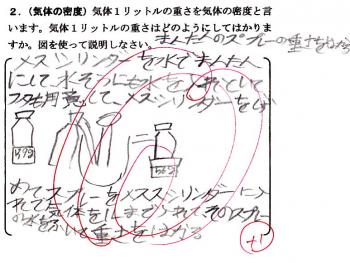 2.(気体の密度)気体1リットルの重さを気体の密度と
言います。気体1リットルの重さはどのようにしてはかりま
すか。図を使って説明しなさい。まんたんのスプレーの重さをはかる
メスシリンダーを水でまんたん
にして、水そうにも水を入れていて
フタも用意して、メスシリンダーをしず
592 = 562
めてスプレーをメスシリンダーに入
れて気体を1Lまでうれて、そのスプレー
の水をふいて重さをはかる
+1